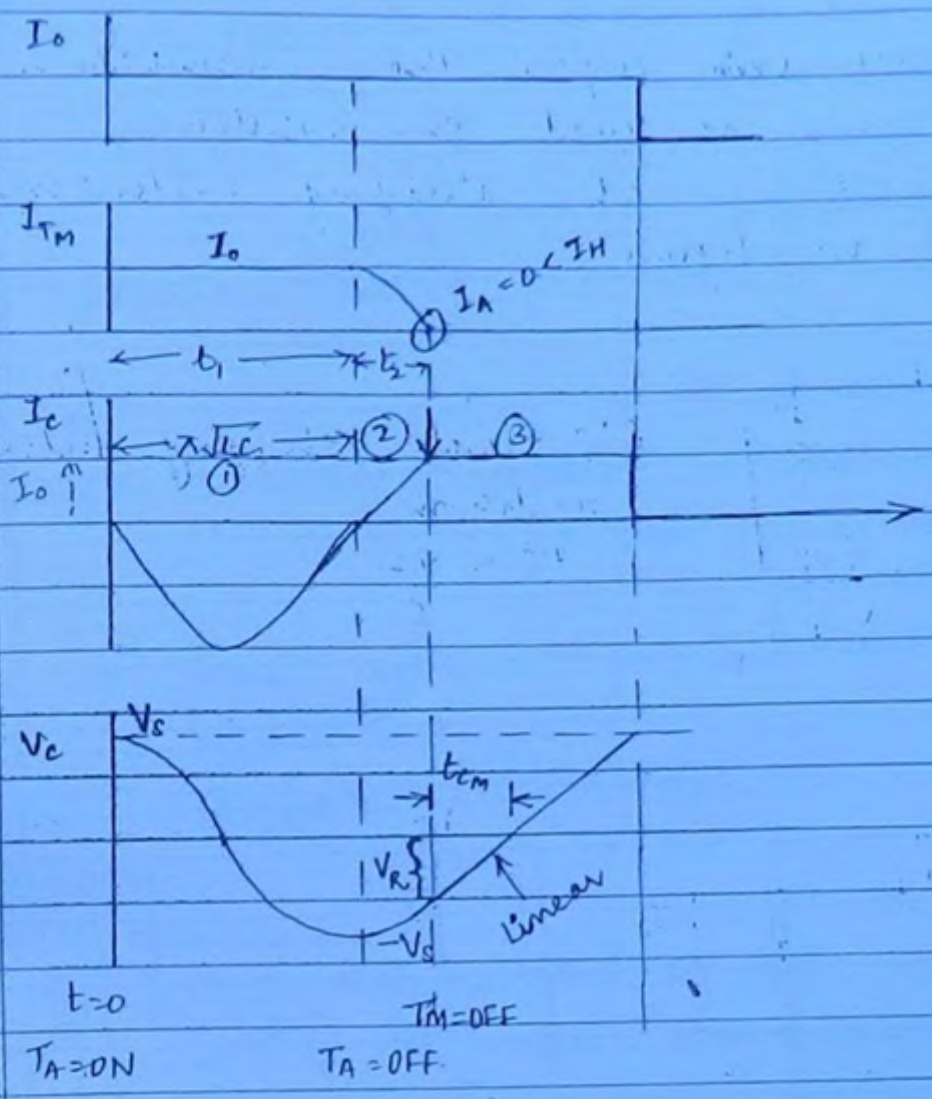 I₀
I_TM
I₀
I_A = 0 < I_H
t₁
t₂
I_C
π√LC
①
②
③
I₀
V_C
V_S
t_CM
V_R
Linear
-V_S
t=0
TM=OFF
T_A=ON
T_A=OFF.